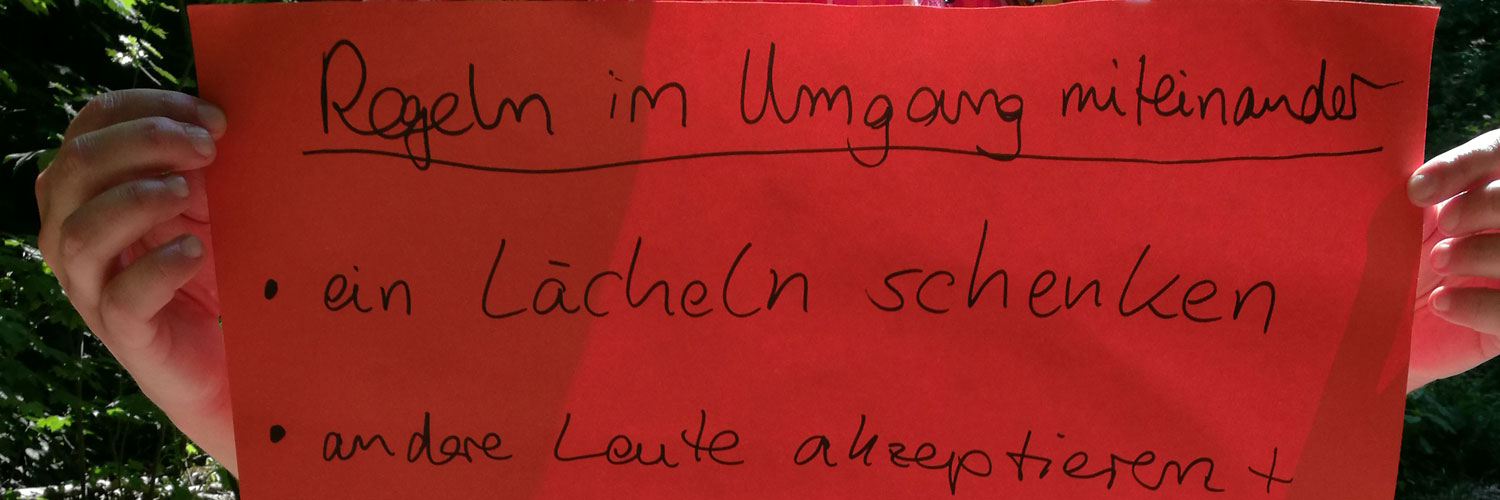 Regeln im Umgang miteinander
• ein Lächeln schenken
• andere Leute akzeptieren +